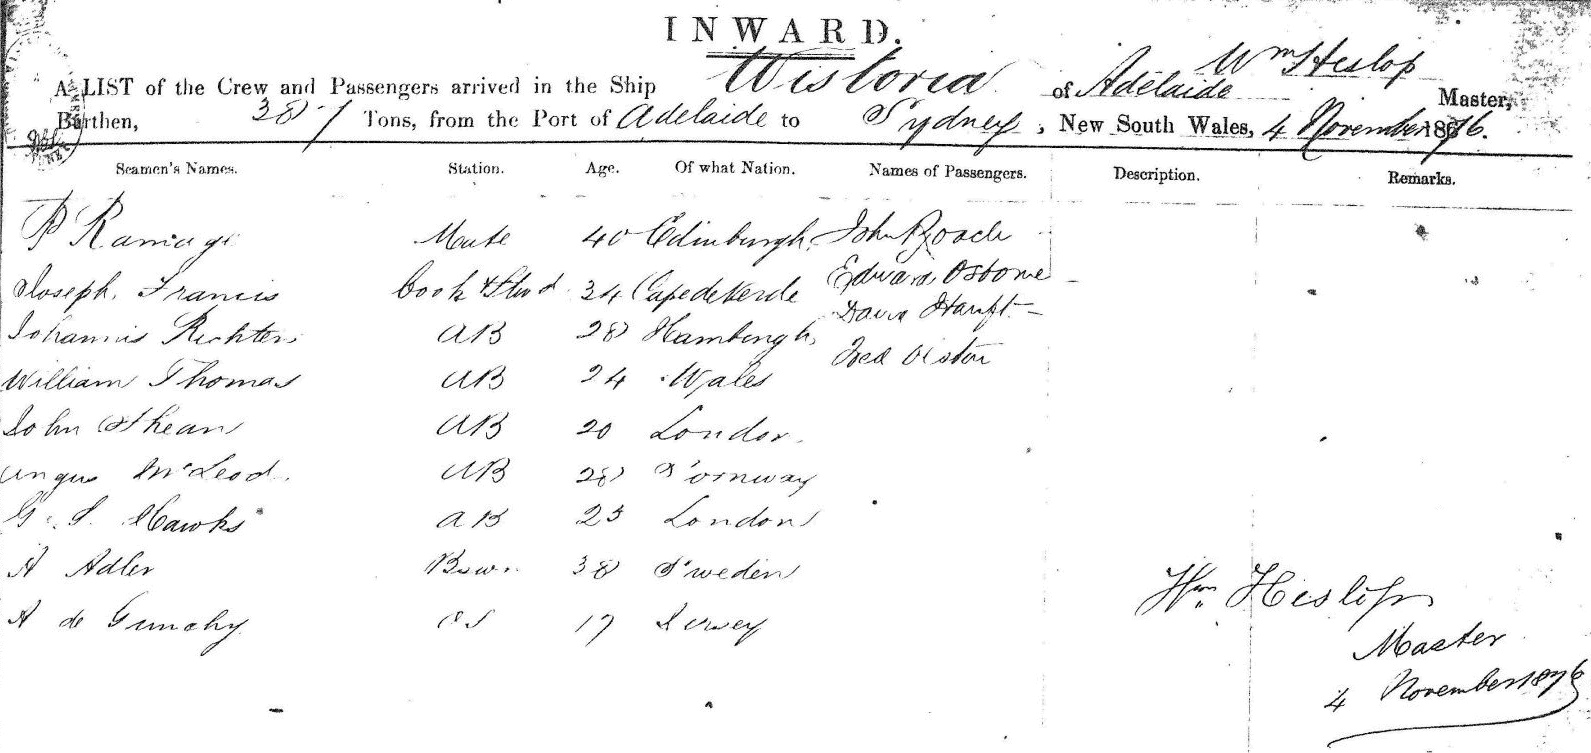 INWARD.
A LIST of the Crew and Passengers arrived in the Ship Wistoria of Adelaide Wm Heslop Master,
Burthen, 387 Tons, from the Port of Adelaide to Sydney, New South Wales, 4 November 1876.
Seamen's Names. Station. Age. Of what Nation. Names of Passengers. Description. Remarks.
P Ramage Mate 40 Edinburgh John Roach
Joseph Francis Cook & Stwd 34 Cape de Verde Edward Osborne
Johannis Richter AB 28 Hamburgh David
William Thomas AB 24 Wales Fred
John AB 20 London
Angus McLeod AB 28 S'ornway
G. S. Hawks AB 25 London
A Adler Bswn 38 Sweden
A de Grunchy OS 17 Jersey
Wm Heslop
Master
4 November 1876